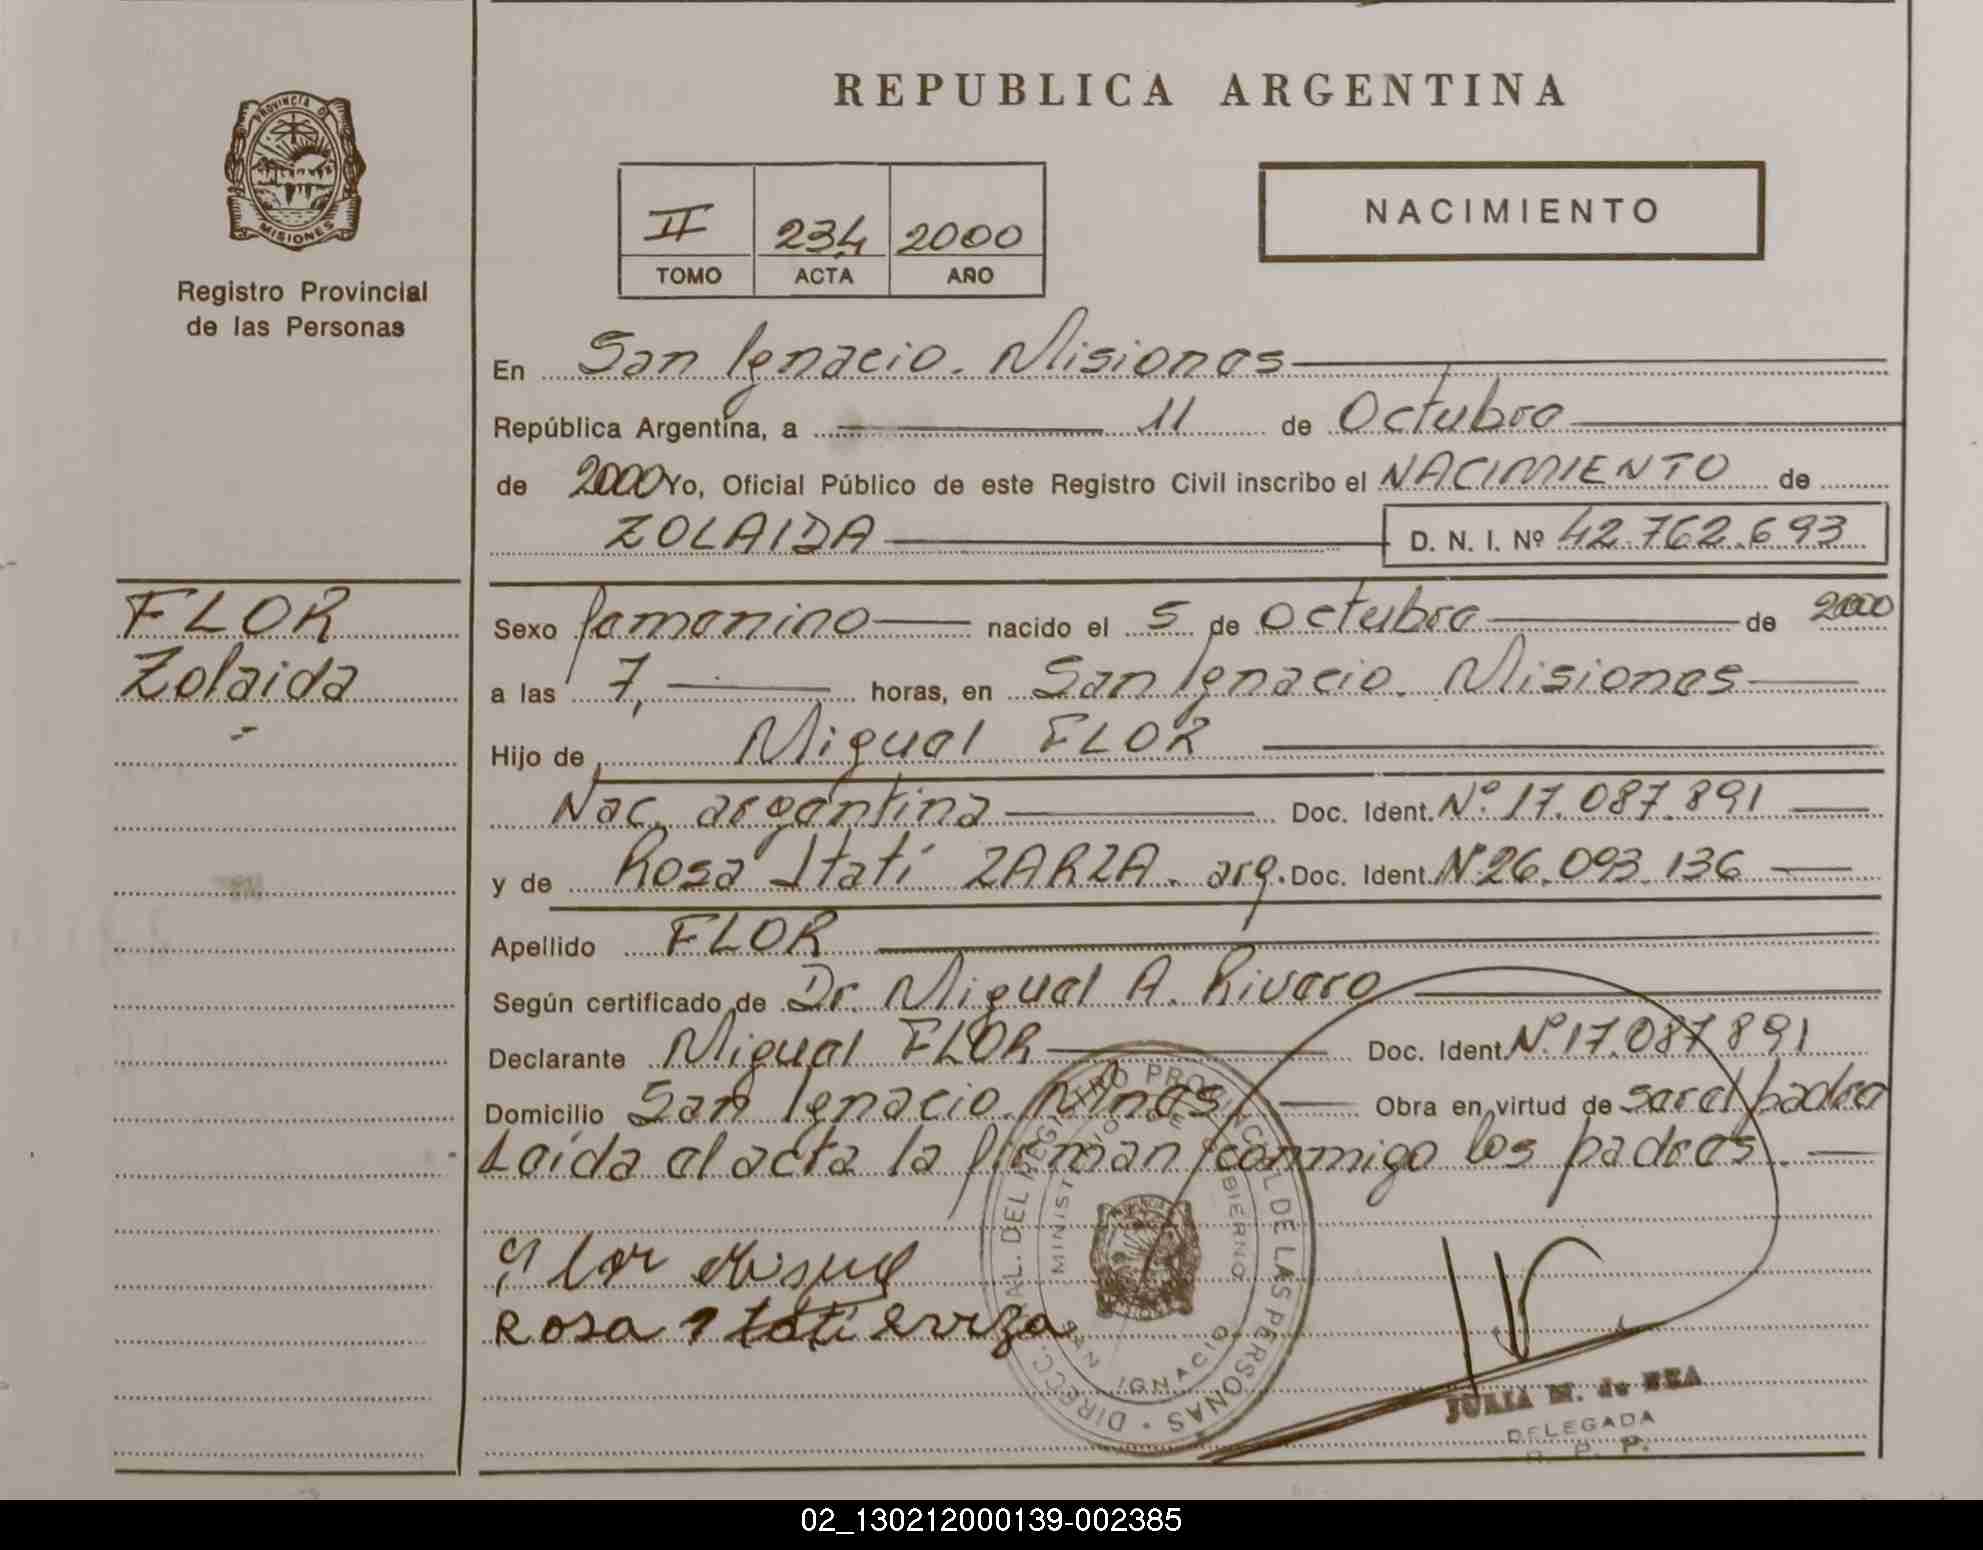 REPUBLICA ARGENTINA
PROVINCIA D
MISIONES
Registro Provincial
de las Personas
NACIMIENTO
II 234 2000
TOMO ACTA AÑO
En San Ignacio. Misiones
República Argentina, a 11 de Octubre
de 2000 Yo, Oficial Público de este Registro Civil inscribo el NACIMIENTO de
ZOLAIDA D. N. I. Nº 42.762.693
FLOR
Zolaida
Sexo femenino nacido el 5 de Octubre de 2000
a las 7, horas, en San Ignacio. Misiones
Hijo de Miguel FLOR
Nac. argentina Doc. Ident. Nº 17.087.891
y de Rosa Itatí ZARZA. arg. Doc. Ident. Nº 26.093.136
Apellido FLOR
Según certificado de Dr. Miguel A. Rivero
Declarante Miguel FLOR Doc. Ident. Nº 17.087.891
Domicilio San Ignacio. Mnes Obra en virtud de ser el padre
Leída el acta la firman conmigo los padres.
Flor Miguel
Rosa Itatí
DIRECC. GRAL. DEL REGISTRO PROVINCIAL DE LAS PERSONAS
MINISTERIO DE GOBIERNO
SAN IGNACIO
M. de
DELEGADA
R. P. P.
02_130212000139-002385